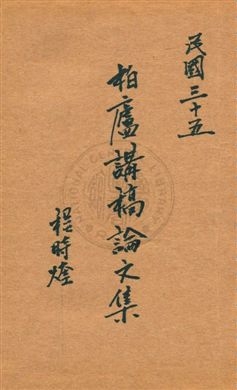 民國三十五
柏廬講稿論文集
程時煃